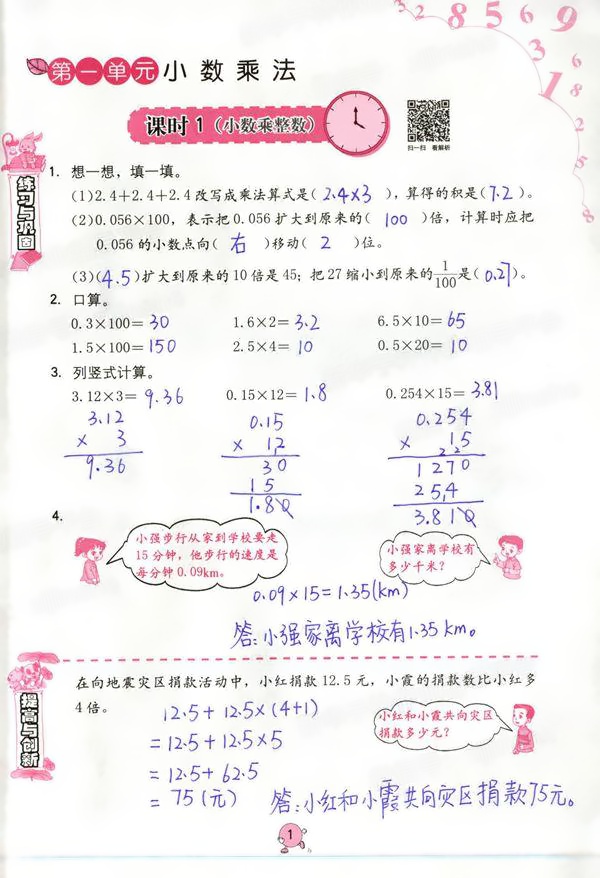 3 2 8 5 6 9
3
1
6
8
2
5
8
第一单元 小数乘法
课时1（小数乘整数）
扫一扫 看解析
练习与巩固
1. 想一想，填一填。
(1)2.4+2.4+2.4改写成乘法算式是( 2.4×3 )，算得的积是(7.2)。
(2)0.056×100，表示把0.056扩大到原来的( 100 )倍，计算时应把
0.056的小数点向( 右 )移动( 2 )位。
(3)(4.5)扩大到原来的10倍是45；把27缩小到原来的1/100是(0.27)。
2. 口算。
0.3×100=30 1.6×2=3.2 6.5×10=65
1.5×100=150 2.5×4=10 0.5×20=10
3. 列竖式计算。
3.12×3=9.36 0.15×12=1.8 0.254×15=3.81
3.12 0.15 0.254
× 3 × 12 × 15
2 2
9.36 30 1270
15 254
1.80 3.810
4.
小强步行从家到学校要走
15分钟，他步行的速度是
每分钟0.09km。
小强家离学校有
多少千米？
0.09×15=1.35(km)
答：小强家离学校有1.35km。
提高与创新
在向地震灾区捐款活动中，小红捐款12.5元，小霞的捐款数比小红多
4倍。
12.5+12.5×(4+1)
=12.5+12.5×5
=12.5+62.5
=75(元)
小红和小霞共向灾区
捐款多少元？
答：小红和小霞共向灾区捐款75元。
1